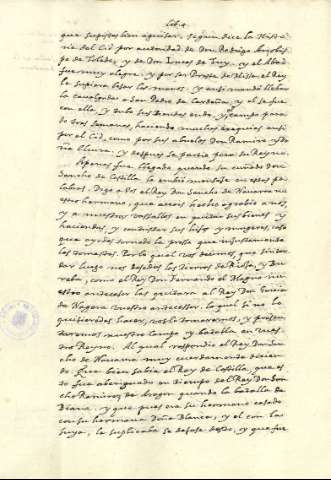 Lib.º
que supistes bien aguisar. segun dice la Histo
ria del Cid por autoridad de Don Rodrigo Arçobis
po de Toledo, y de Don Lucas de Tuy. y el Abad
fue muy alegre. y por ser Preste de Missa el Rey
le supiera besar las manos. y assi mandó llebar
la caualgada a San Pedro de Cardeña, y el se fue
con ella, y tubo sus tiendas ende,
do tres semanas, haciendo muchas exequias assi
por el Cid, como por sus abuelos Don Ramiro, y Do
ña Eluira. y despues se partio para su Reyno.
Apenas fue llegado quando su cuñado Don
Sancho de Castilla le embio mensage en estas pa
labras. Digo a vos el Rey Don Sancho de Nauarra nu
estro hermano, que aueis hecho agrabio a nos,
y a nuestros vassallos en quitar sus bienes y
haciendas, y entristar sus hijos y mugeres, cosa
que ayades tornado la presa que injustamente
les tomastes. Por lo qual vos decimos, que sin tar
dar luego nos dejades las tierras de Rioja, y Bu
reba, como el Rey Don Fernando el Magno nu
estro antecesor las quitara al Rey Don Garcia
de Nagera vuestro antecessor. lo qual si no lo
quisieredes hacer, nos lo tomaremos, y presen
taremos nuestro campo y batalla en vues
tro Reyno. Al qual respondió el Rey Don San
cho de Nauarra muy cuerdamente dicien
do. Que bien sabia el Rey de Castilla, que es
to fue aberiguado en tiempo del Rey Don San
cho Ramirez de Aragon quando la batalla de
Viana. y que pues era su hermano casado
con su hermana Doña Blanca, y el con la
suya, le suplicaba se dejase desso, y que fue